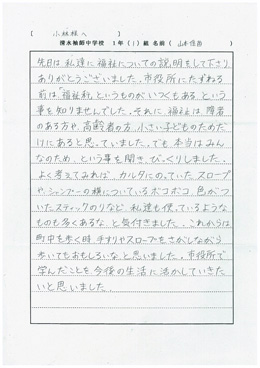 [ 小林様へ ]
清水袖師中学校 1年(1)組 名前( )
先日は私達に福祉についての説明をして下さり
ありがとうございました。市役所にたずねる
前は、福祉というものがいくつもある、という
事を知りませんでした。それに、福祉は、障害
のある方や、高齢者の方、小さい子どものためだ
けにあると思っていました。でも本当はみん
なのため、という事を聞き、びっくりしました。
よく考えてみれば、カルタにのっていたスロープ
や、シャンプーの横についているボコボコ、色がつ
いたスティックのりなど、私達も使っているような
ものも多くあるな、と気付きました。これからは
町中を歩く時、手すりやスロープをさがしながら
歩いてもおもしろいな、と思いました。市役所で
学んだことを今後の生活に活かしていきた
いと思いました。